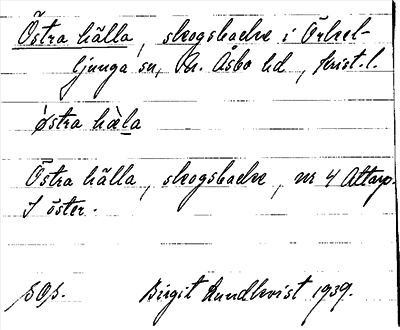 Östra hälla, skogsbacke i Örkel-
ljunga sn, N. Åsbo hd, Krist. l.
östra hæ̀la
Östra hälla, skogsbacke, nr 4 Attarp.
I öster.
SOS. Birgit Lundkvist 1939.